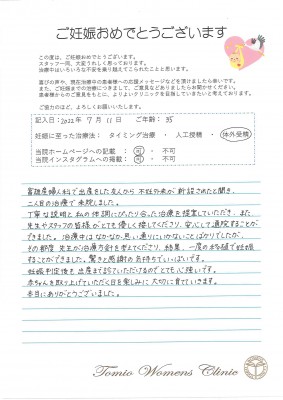 ご妊娠おめでとうございます
この度は、ご妊娠おめでとうございます。
スタッフ一同、大変うれしく思っております。
治療中はいろいろな不安を乗り越えてこられたことと思います。
喜びの声や、現在治療中の患者様への応援メッセージなどを頂けましたら幸いです。
また、ご妊娠までの治療につきまして、ご意見などありましたらお聞かせください。
患者様からのご意見をもとに、よりよいクリニックを目指していきたいと考えております。
ご協力のほど、よろしくお願いいたします。
記入日:2022年 7月 11日 ご年齢: 35
妊娠に至った治療法: タイミング治療 ・ 人工授精 ・ 体外受精
当院ホームページへの記載 : 可 ・ 不可
当院インスタグラムへの掲載 : 可 ・ 不可
富雄産婦人科で出産をした友人から不妊外来が新設されたと聞き、
二人目の治療で来院しました。
丁寧な説明と私の体調にぴったり合った治療を提案していただき、また
先生やスタッフの皆様がとても優しく接してくださり、安心して通院することが
できました。治療中はなかなか思い通りにいかないことばかりでしたが、
その都度 先生が治療方針を考えてくださり、結果、一度の移植で妊娠
することができました。驚きと感謝の気持ちでいっぱいです。
妊娠判定後も出産まで診ていただけるのでとても心強いです。
赤ちゃんを取り上げていただく日を楽しみに大切に育てていきます。
本当にありがとうございました。
Tomio Womens Clinic